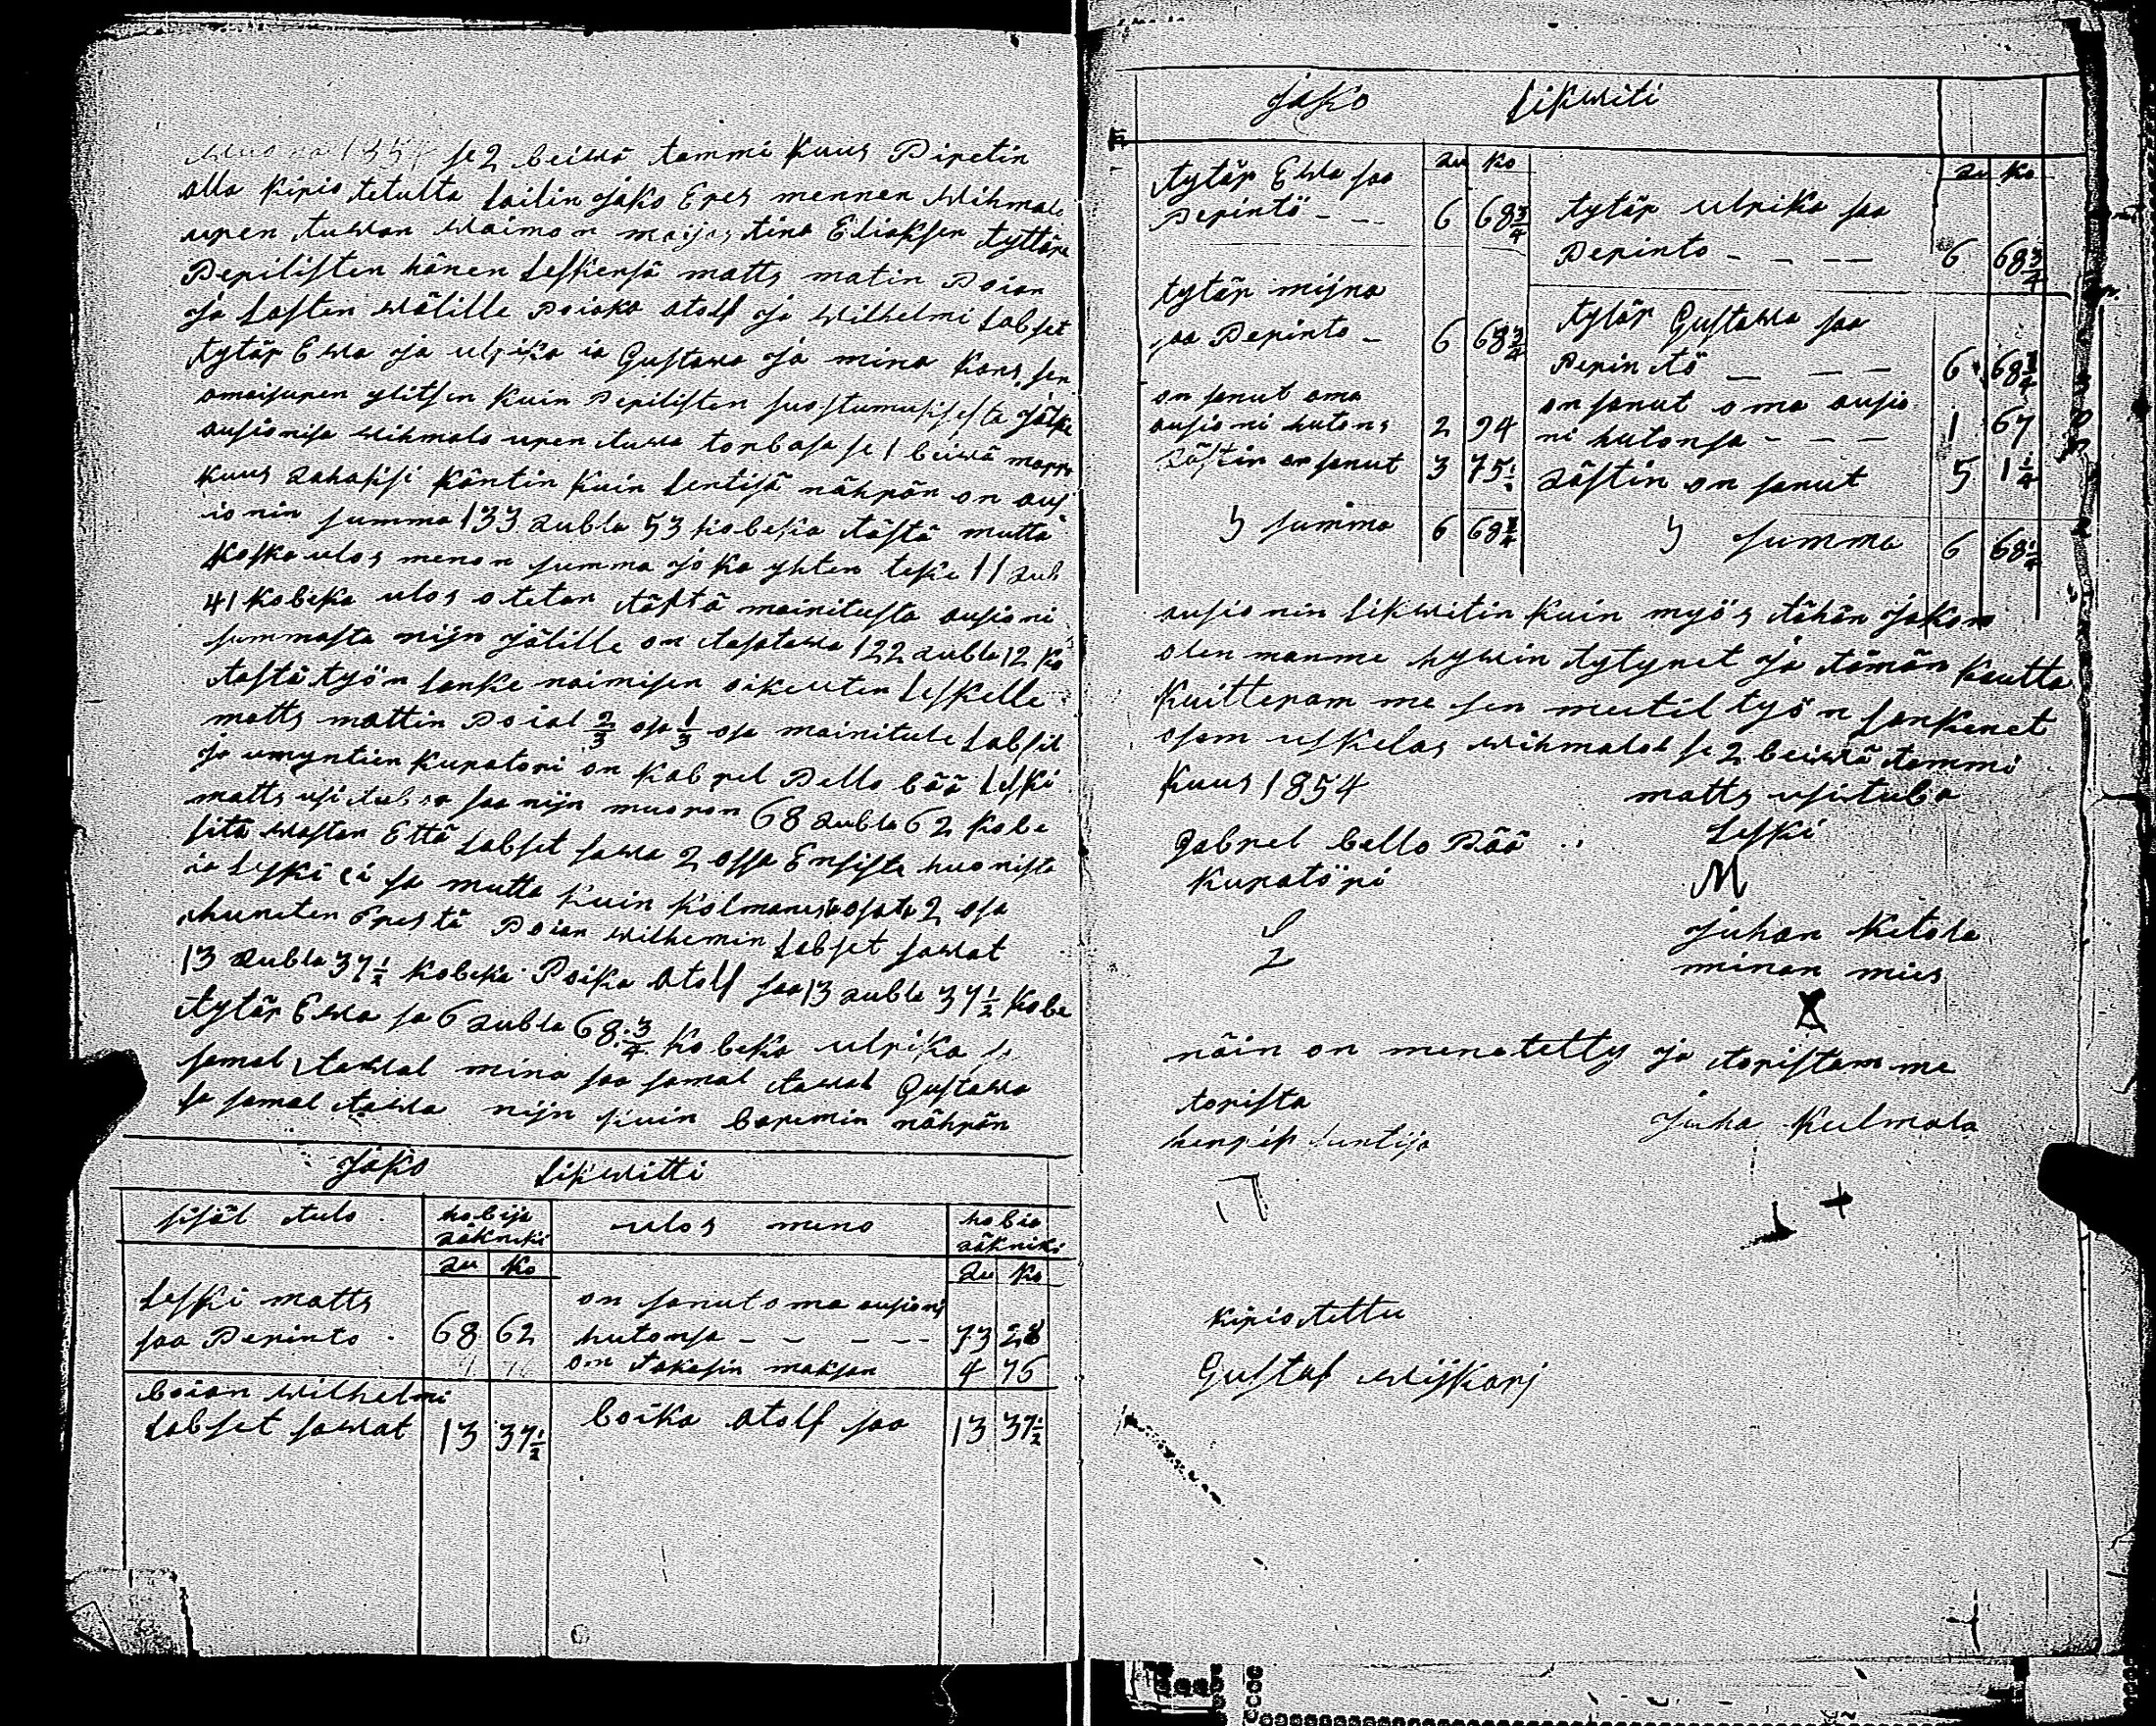 se 2 beiwä tammi kuus Piretin
alla kirio tetulta laitin jako Eres mennen Wihmalo
upen tuwan waimon maijas tina Eliaksen tyttäre
Perilisten hänen Leskensä matts matin Poian
ja Lasten wälille Poiska Atolf ja Wilhelmi Labset
tytär Ewa ja ulrika ia Gustawa ja mina kans sen
omaisuren ylitsen kuin Perilisten suostumusisesta jälke
ausionisa Wihmalo upen tuwa torbasa se 1 beiwä marras
kuus
kuin Lentisä nährän on ausi
ionin summa 133 rubla 53 kobeka tästä mutta
koska ulos menon summa joka yhten teke 11 rub
41 kobeka ulos otetan tästä mainitusta ausioni
summasta nijn jälille on tasatawa 122 rubla 12 ko
tästä työn lanke naimisen oikeuten Leskelle
matts mattin Poial 2/3 osa 1/3 osa mainitule Labsil
ja umyntien kuratori on kabrel Pello bää Leski
matts usitubaa saa nijn muoron 68 rubla 62 kobe
sitä wastan Että Labset sawa 2 ossa Ensiste huonista
ia Leski ei sa mutta kuin kolmanesta osata 2 osa
huneten Erestä Poian Wilhemin Labset sawat
13 rubla 37 1/2 kobeka Poika Atolf saa 13 rubla 37 1/2 kobe
tytär Ewa sa 6 rubla 68 3/4 kobeka ulrika s
samal tawal mina saa samal tawal Gustawa
sa samal tawla nijn kuin baremin nährän
Jako Likwitti
sisäl tulo hobija räkniki ulos meno hobia räkniki
ru ko ru ko
Leski matts on sanut oma ausioni
saa Perinto - 68 62 hutonsa - - - - - 73 28
on takasin maksan 4 76
boian Wilhelmi
Labset sawat 13 37 1/2 boika Atolf saa 13 37 1/2
Jako Likwiti
ru ko ru ko
tytär Ewa saa
Perintö - - - 6 68 3/4 tytär ulrika saa
Perinto - - - - 6 68 3/4
tytär mijna
saa Perinto - 6 68 3/4 tytär Gustawa saa
Perintö - - - 6 68 3/4
on sanut oma on sanut oma ausio
ausioni hutons 2 94 ni hutonsa - - - 1 67
rästin on sanut 3 75 rästin on sanut 5 1 1/4
summa 6 68 3/4 summa 6 68
ausionin Likwitin kuin myös tähän jakon
olen manme hywin tytynet ja tämän kautta
kuitteram me sen meitil työn lankenet
osam uskelas Wihmalos se 2 beiwä tammi
kuus 1854 matts usituba
Leski
gabrel bello Pää M
kuratöri
Juhan ketola
minan mies
X
näin on menetetty ja toristam me
torista
Juha kulmala
+
kirio tettu
Gustaf Wijkari